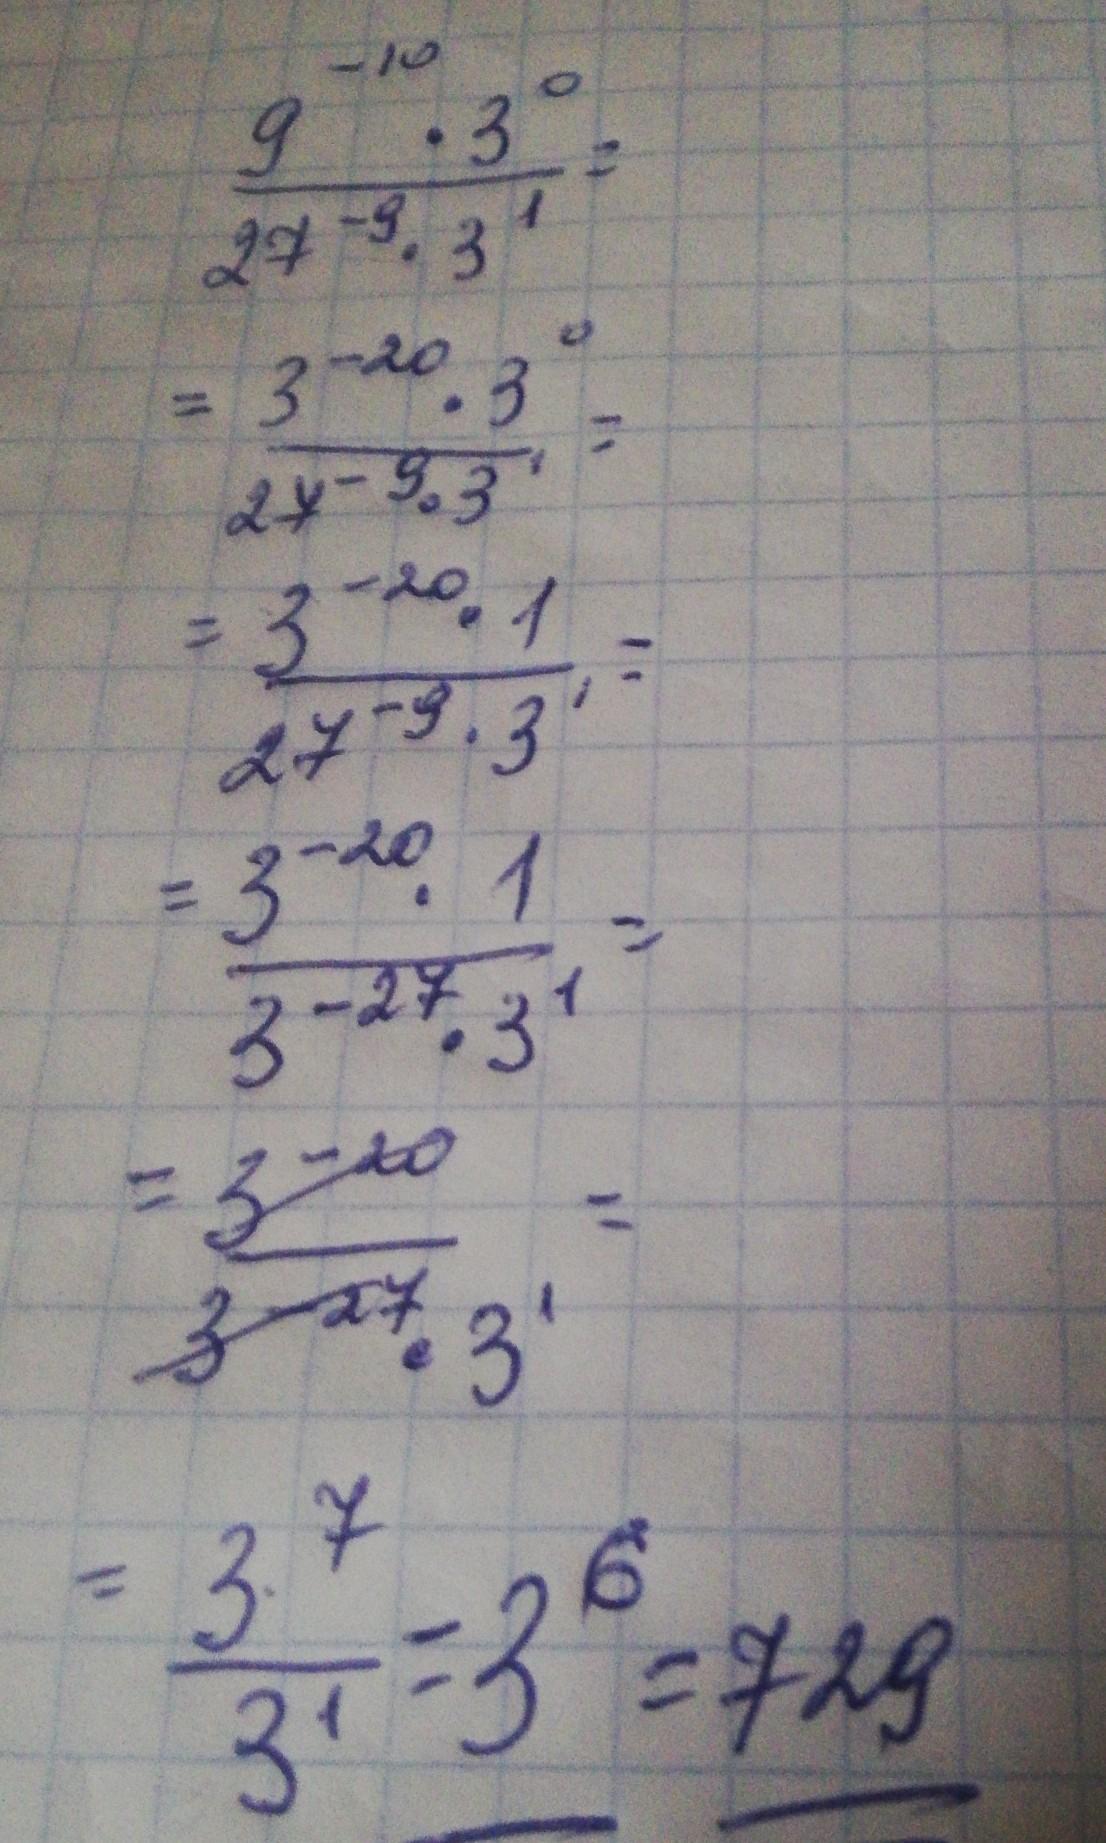 9^{-10} · 3^0 =
27^{-9} · 3^1
= 3^{-20} · 3^0 =
27^{-9} · 3^1
= 3^{-20} · 1 =
27^{-9} · 3^1
= 3^{-20} · 1 =
3^{-27} · 3^1
= 3^{-20} =
3^{-27} · 3^1
= 3^7 = 3^6 = 729
3^1